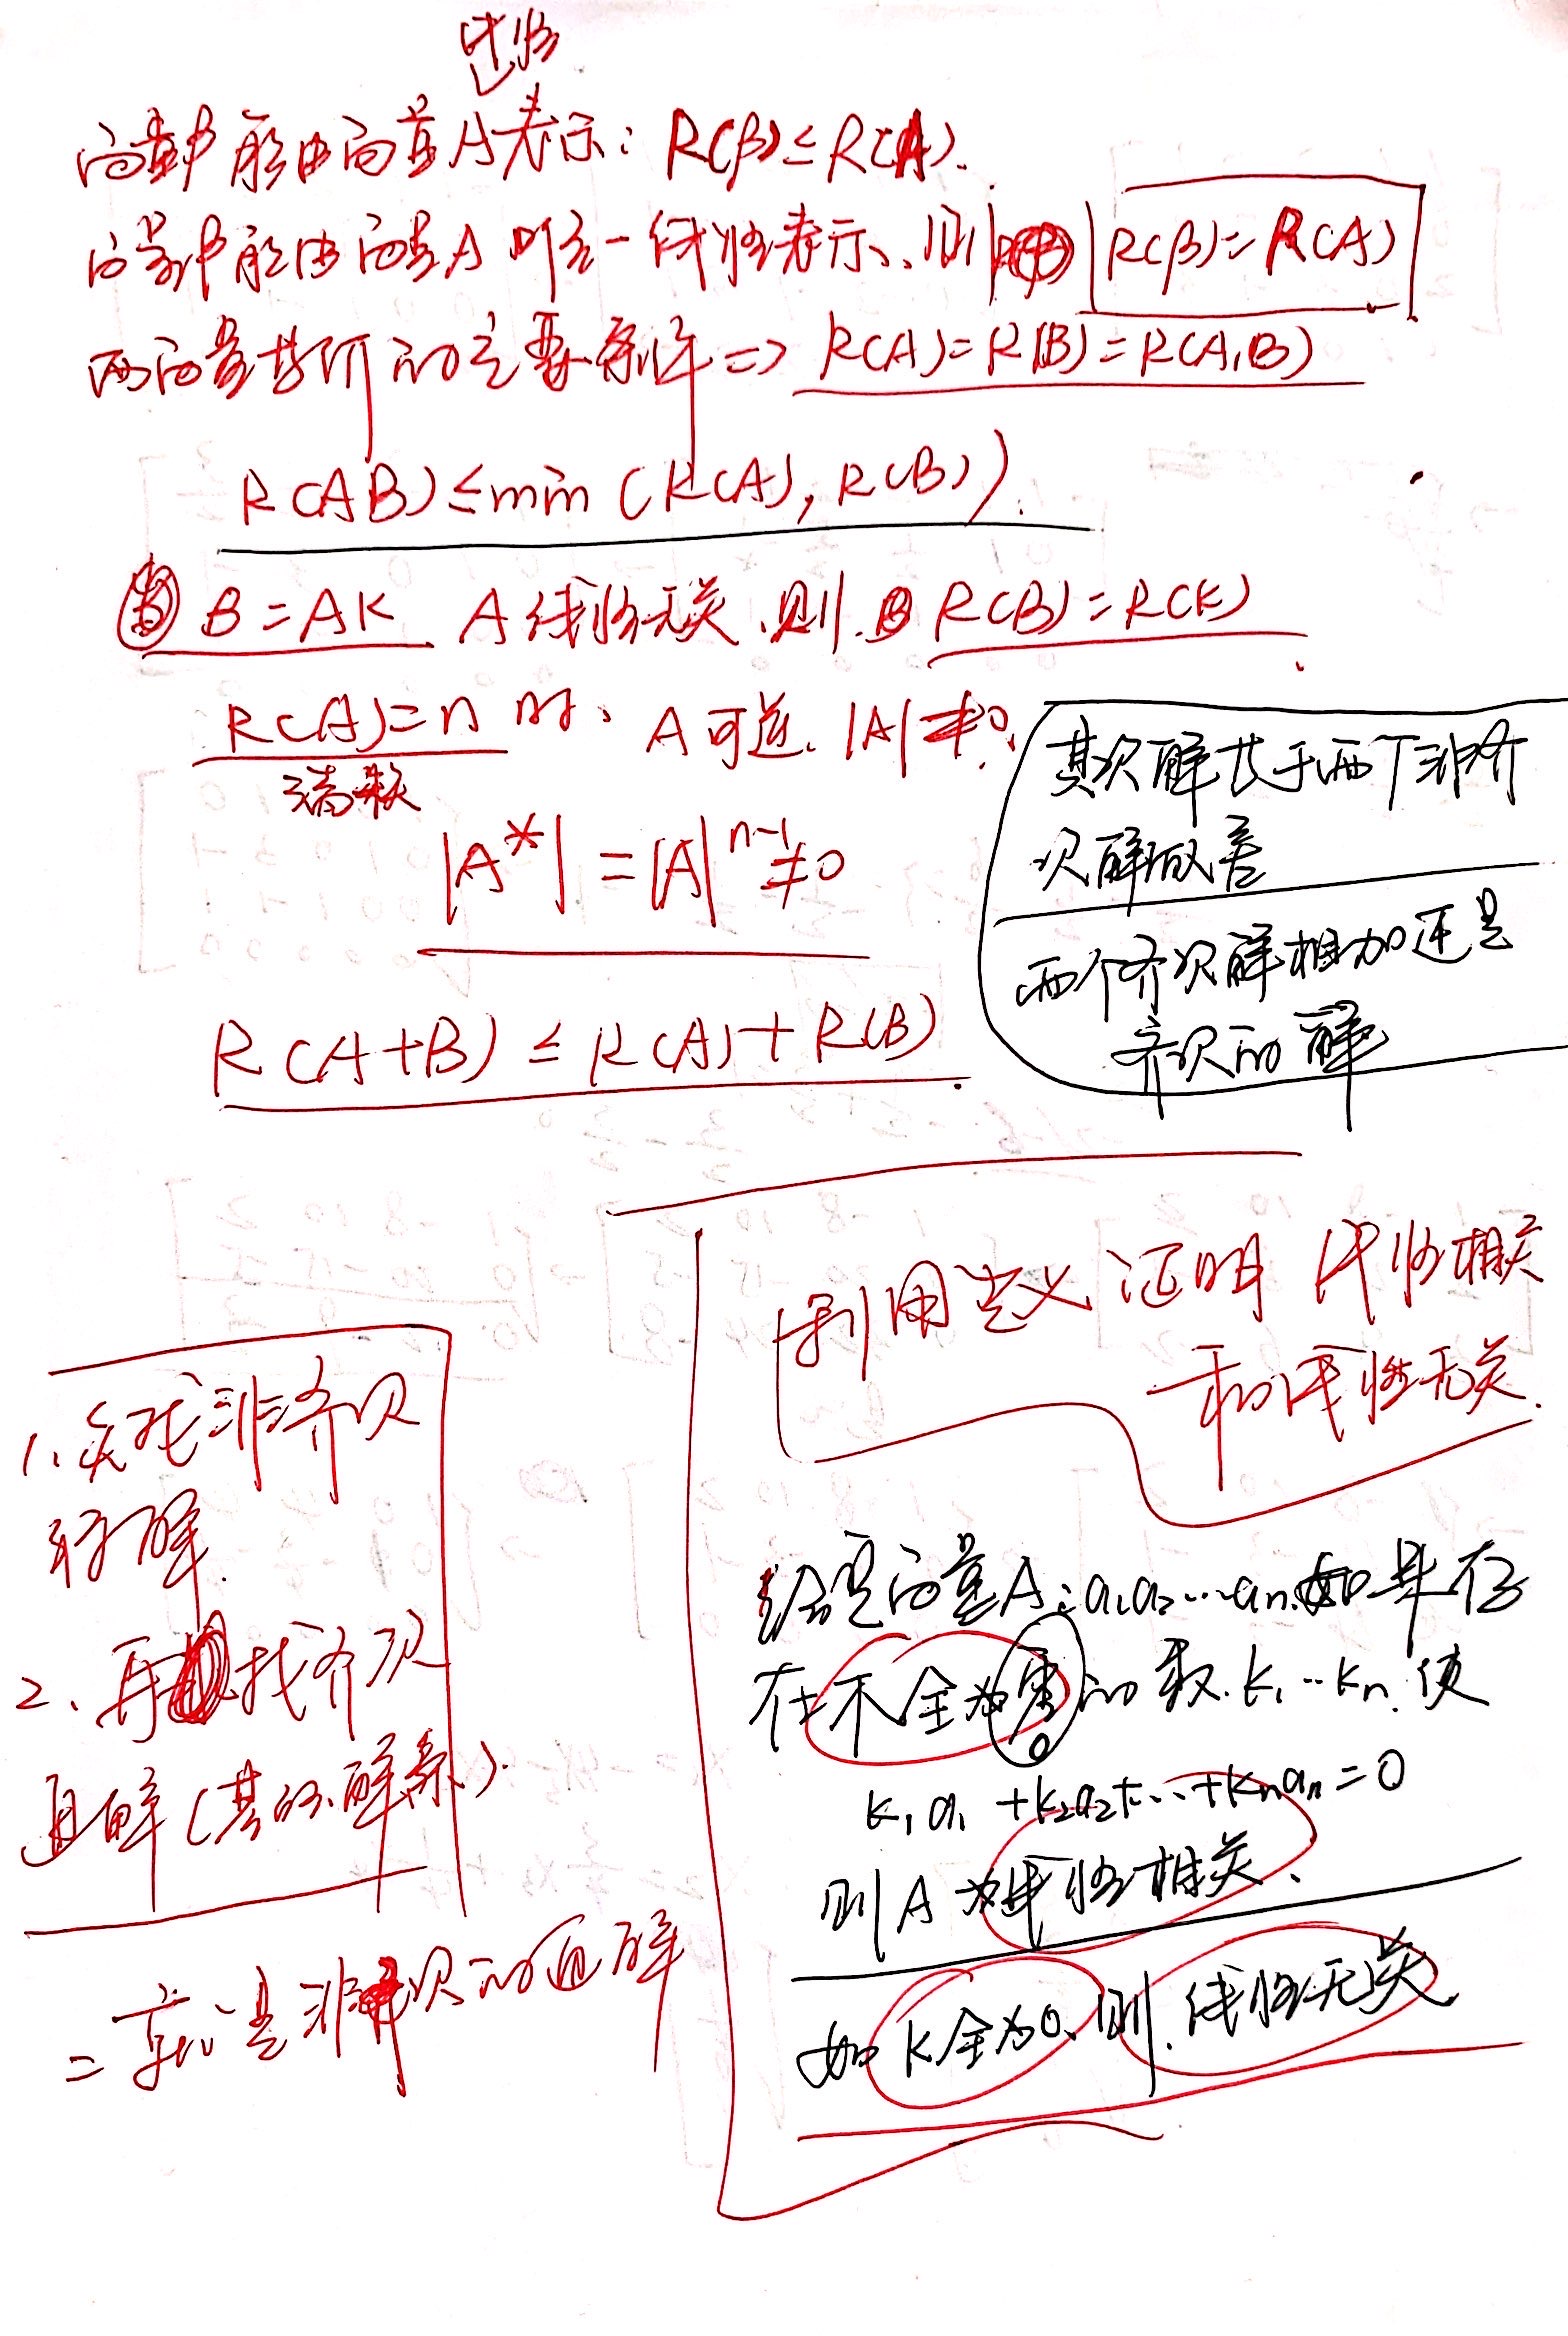 线性
向量β能由向量A表示: R(β)≤R(A).
向量β能由向量A唯一线性表示、则 R(β)=R(A)
两向量等价的充要条件 => R(A)=R(B)=R(A,B)
R(AB)≤min(R(A), R(B)).
当 B=AK A线性无关.则 R(B)=R(K)
R(A)=n 时、A可逆. |A|≠0.
满秩
|A*|=|A|^{n-1}≠0
R(A+B) ≤ R(A)+R(B).
其次解等于两个非齐
次解做差
两个齐次解相加还是
齐次的解
利用定义证明线性相关
和线性无关.
给定向量A:a₁a₂…an.如果存
在不全为零的数.k₁…kn.使
0
k₁a₁+k₂a₂+…+knan=0
则A为线性相关.
如K全为0、则.线性无关
1.先找非齐次
特解.
2.再找齐次
通解(基础解系).
=就是非齐次的通解